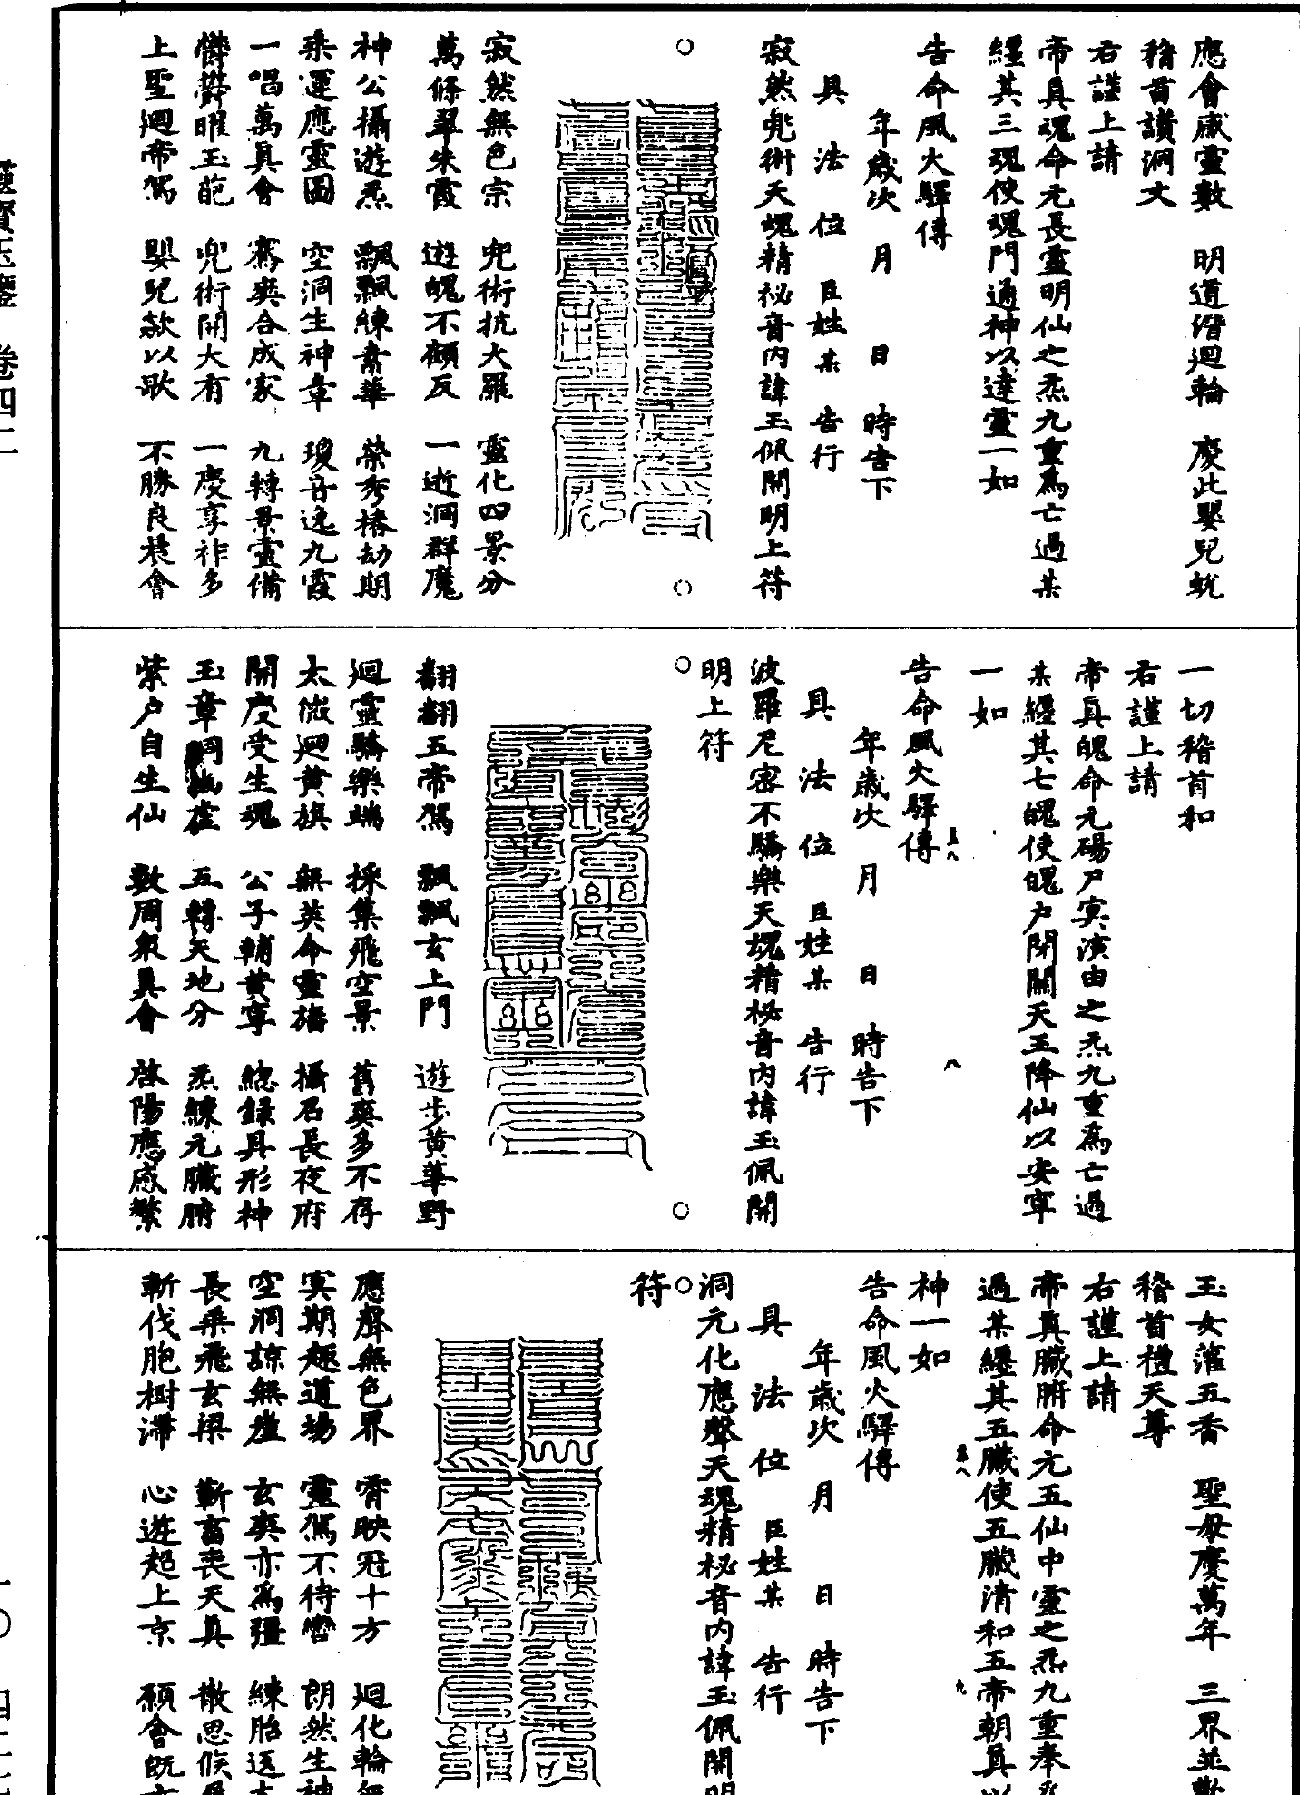 應會感靈數　明道潛迴輪　慶此嬰兒蛻
稽首讚洞文
右謹上請
帝真魂命元長靈明仙之炁九重為亡過某
經其三魂使魂門通神以達靈一如
告命風火驛傳
年歲次　月　日　時告下
具　法　位　臣姓某　告行
寂然兜術天魂精秘音內諱玉佩開明上符
○　○
寂然無色宗　兜術抗大羅　靈化四景分
萬條翠朱霞　遊魄不顧反　一逝洞群魔
神公攝遊炁　飄飄練素華　榮秀椿劫期
乘運應靈圖　空洞生神章　瓊音逸九霞
一唱萬真會　騫爽合成家　九轉景靈備
鬱曜玉葩　兜術開大有　一慶享祚多
上聖迴帝駕　嬰兒欻以歌　不勝良晨會
一切稽首和
右謹上請
帝真魄命元碭尸冥演由之炁九重為亡過
某經其七魄使魄戶閉關天王降仙以安寧
一如
告命風火驛傳
年歲次　月　日　時告下
具　法　位　臣姓某　告行
波羅尼密不驕樂天魂精秘音內諱玉佩開
明上符
○　○
翻翻五帝駕　飄飄玄上門　遊步黃華野
迴靈驕樂端　採集飛空景　舊爽多不存
太微迴黃旗　無英命靈旛　攝召長夜府
開度受生魂　公子輔黃寧　總錄具形神
玉章　五轉天地分　炁練元臟腑
紫戶自生仙　數周眾真會　啓陽應感繁
玉女灑五香　聖母慶萬年　三界並歡
稽首禮天尊
右謹上請
帝真臟腑命元五仙中靈之炁九重奉為
過某經其五臟使五臟清和五帝朝真以
神一如
告命風火驛傳
年歲次　月　日　時告下
具　法　位　臣姓某　告行
洞元化應聲天魂精秘音內諱玉佩開明
○符
應聲無色界　霄映冠十方　迴化輪無
冥期趣道場　靈駕不待轡　朗然生神
空洞諒無崖　玄爽亦為彊　練胎返
長乘飛玄梁　蕲畜喪天真　散思候
斬伐胞樹滯　心遊超上京　願會既
道寶玉鑒　卷四二
一〇　四二